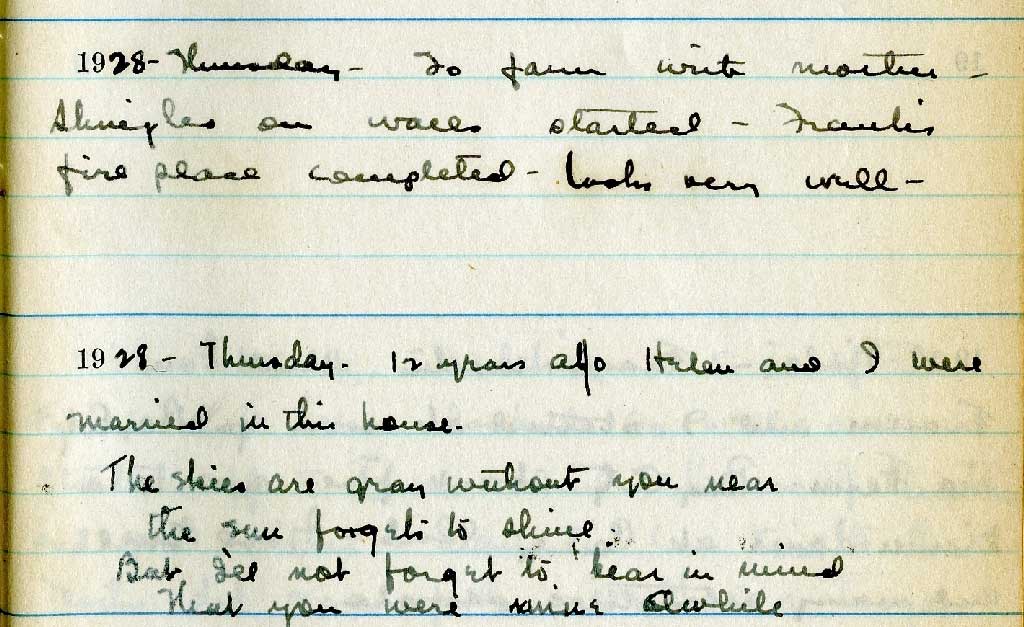 1928 - Thursday - To farm with mother -
Shingles on walls started - Frank's
fire place completed - looks very well -
1928 - Thursday - 12 years ago Helen and I were
married in this house.
The skies are gray without you near
the sun forgets to shine.
But I'll not forget to bear in mind
that you were mine awhile